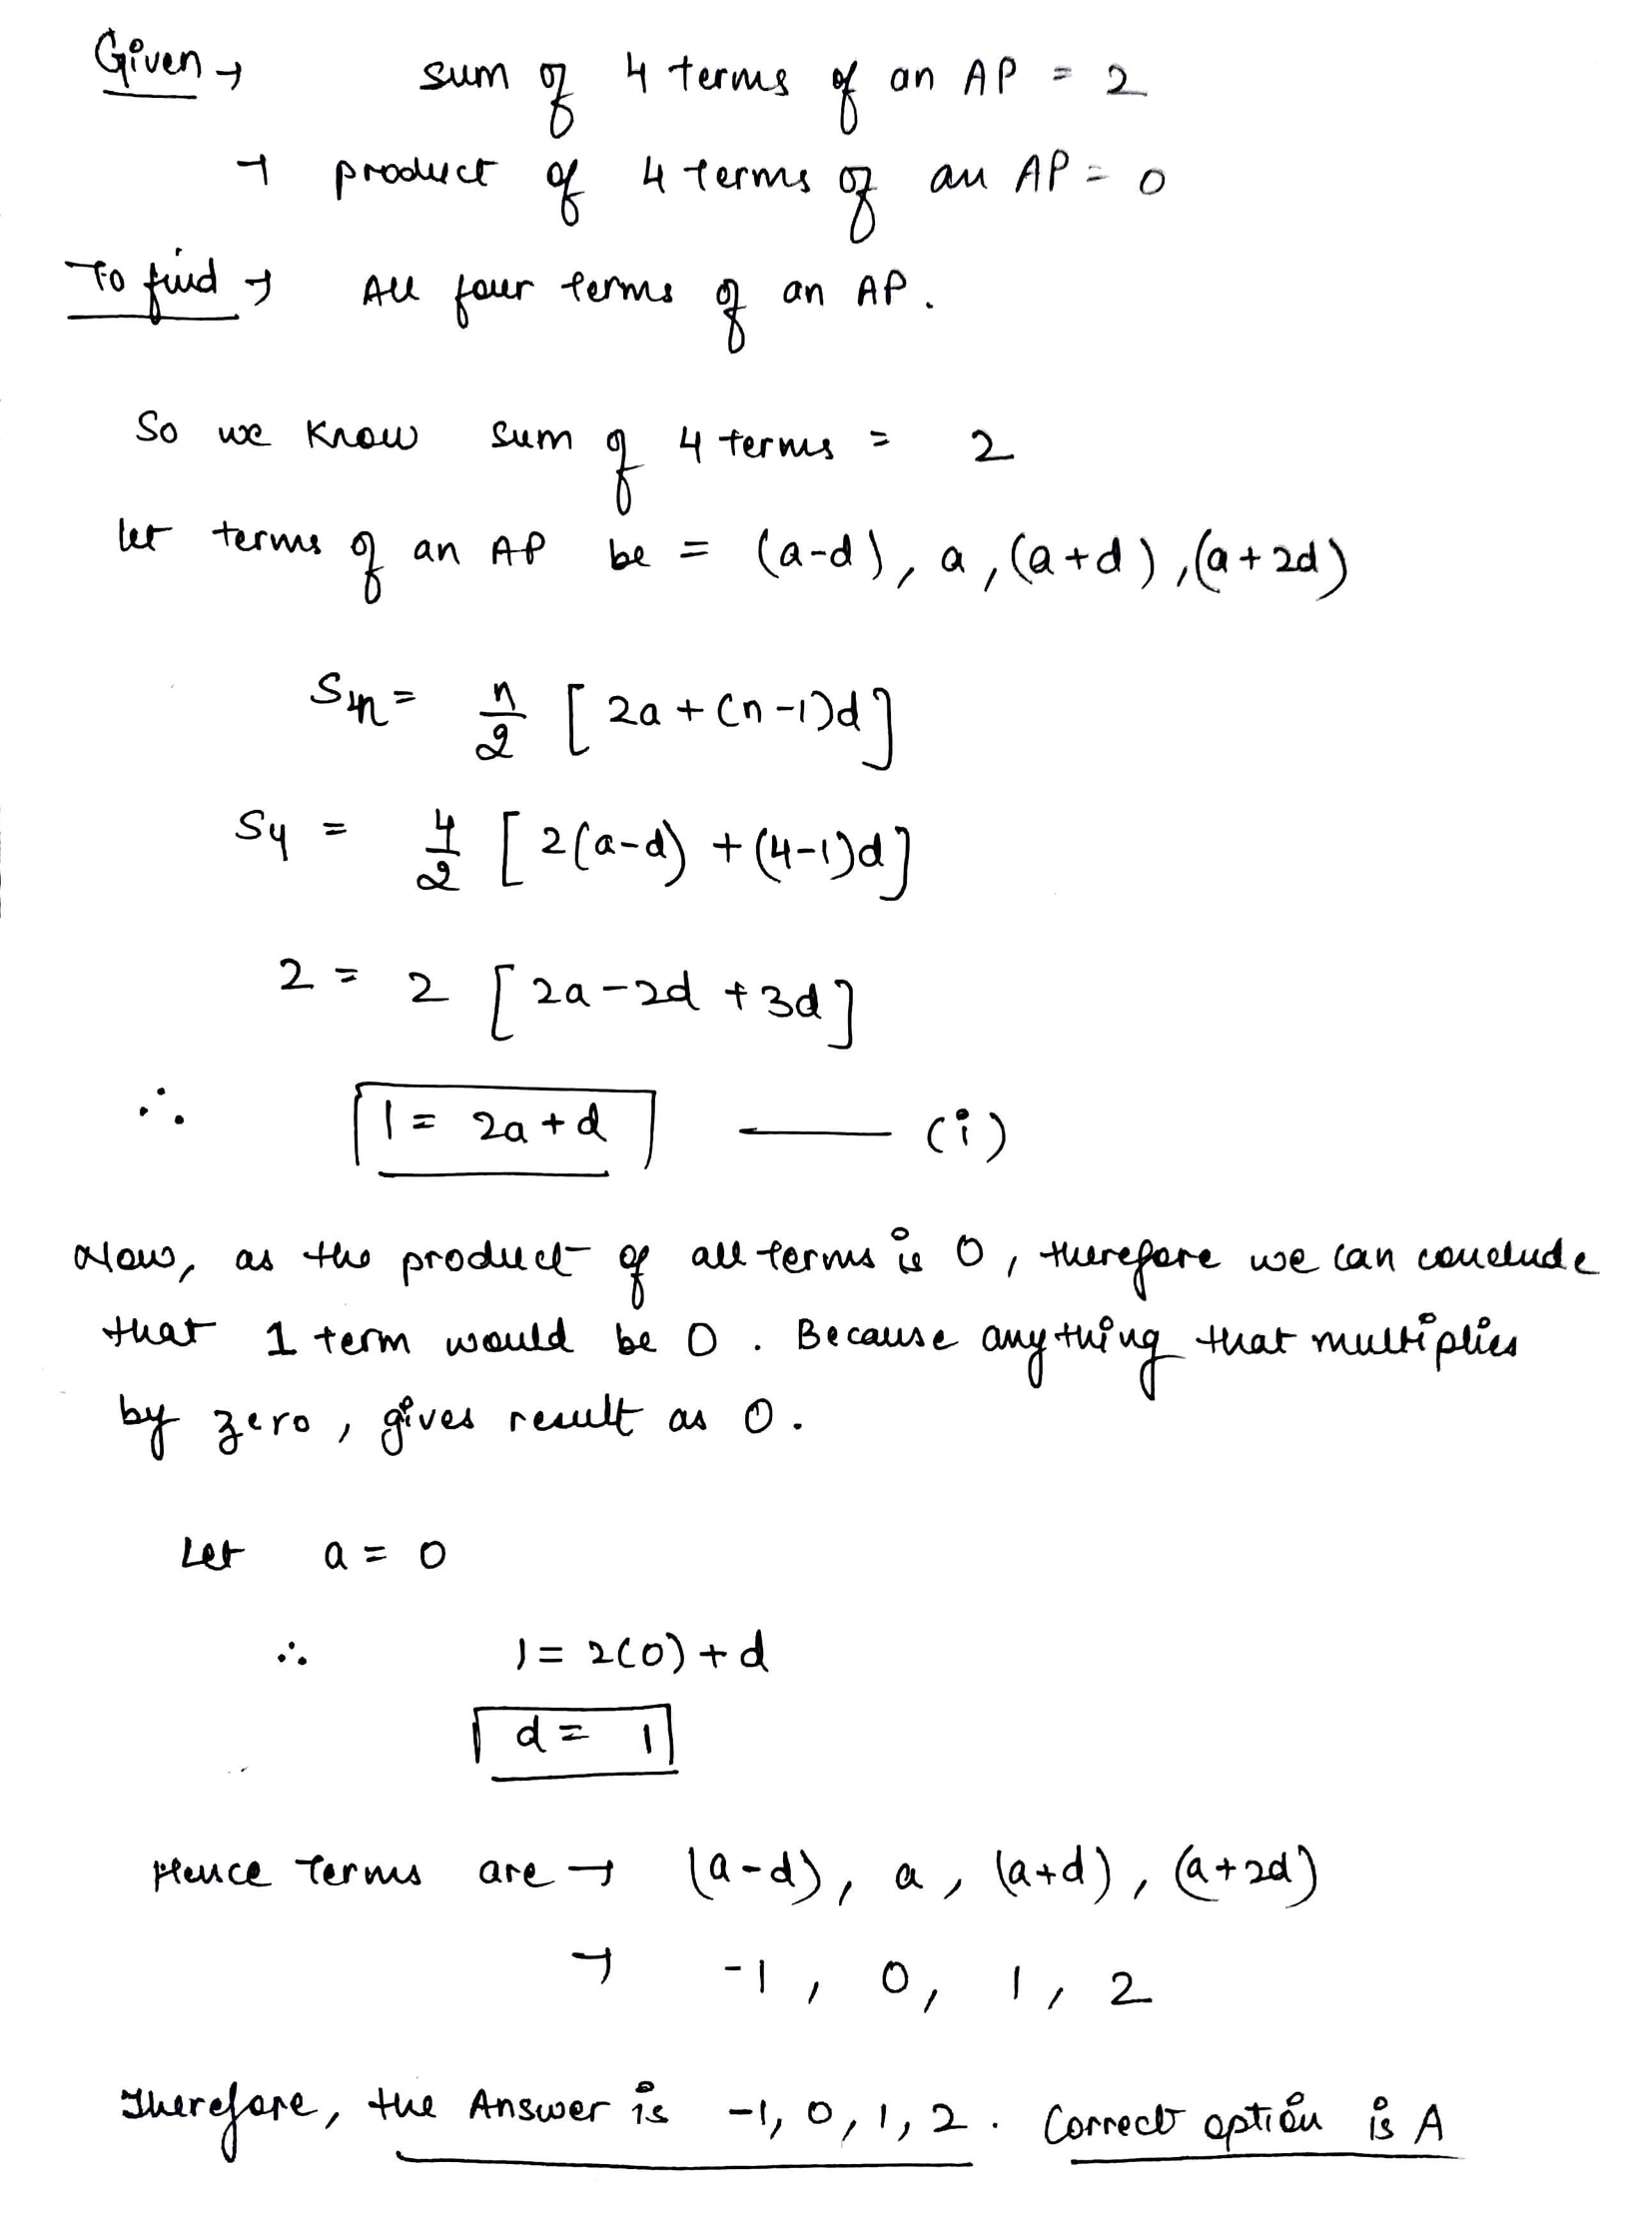 Given → sum of 4 terms of an AP = 2
→ product of 4 terms of an AP = 0
To find → All four terms of an AP.
So we know sum of 4 terms = 2
let terms of an AP be = (a-d), a, (a+d), (a+2d)
Sn = n/2 [2a + (n-1)d]
S4 = 4/2 [2(a-d) + (4-1)d]
2 = 2 [2a-2d+3d]
∴ 1 = 2a+d —— (i)
Now, as the product of all terms is 0, therefore we can conclude
that 1 term would be 0. Because anything that multiplies
by zero, gives result as 0.
Let a = 0
∴ 1 = 2(0) + d
d = 1
Hence Terms are → (a-d), a, (a+d), (a+2d)
→ -1, 0, 1, 2
Therefore, the Answer is -1, 0, 1, 2. Correct option is A